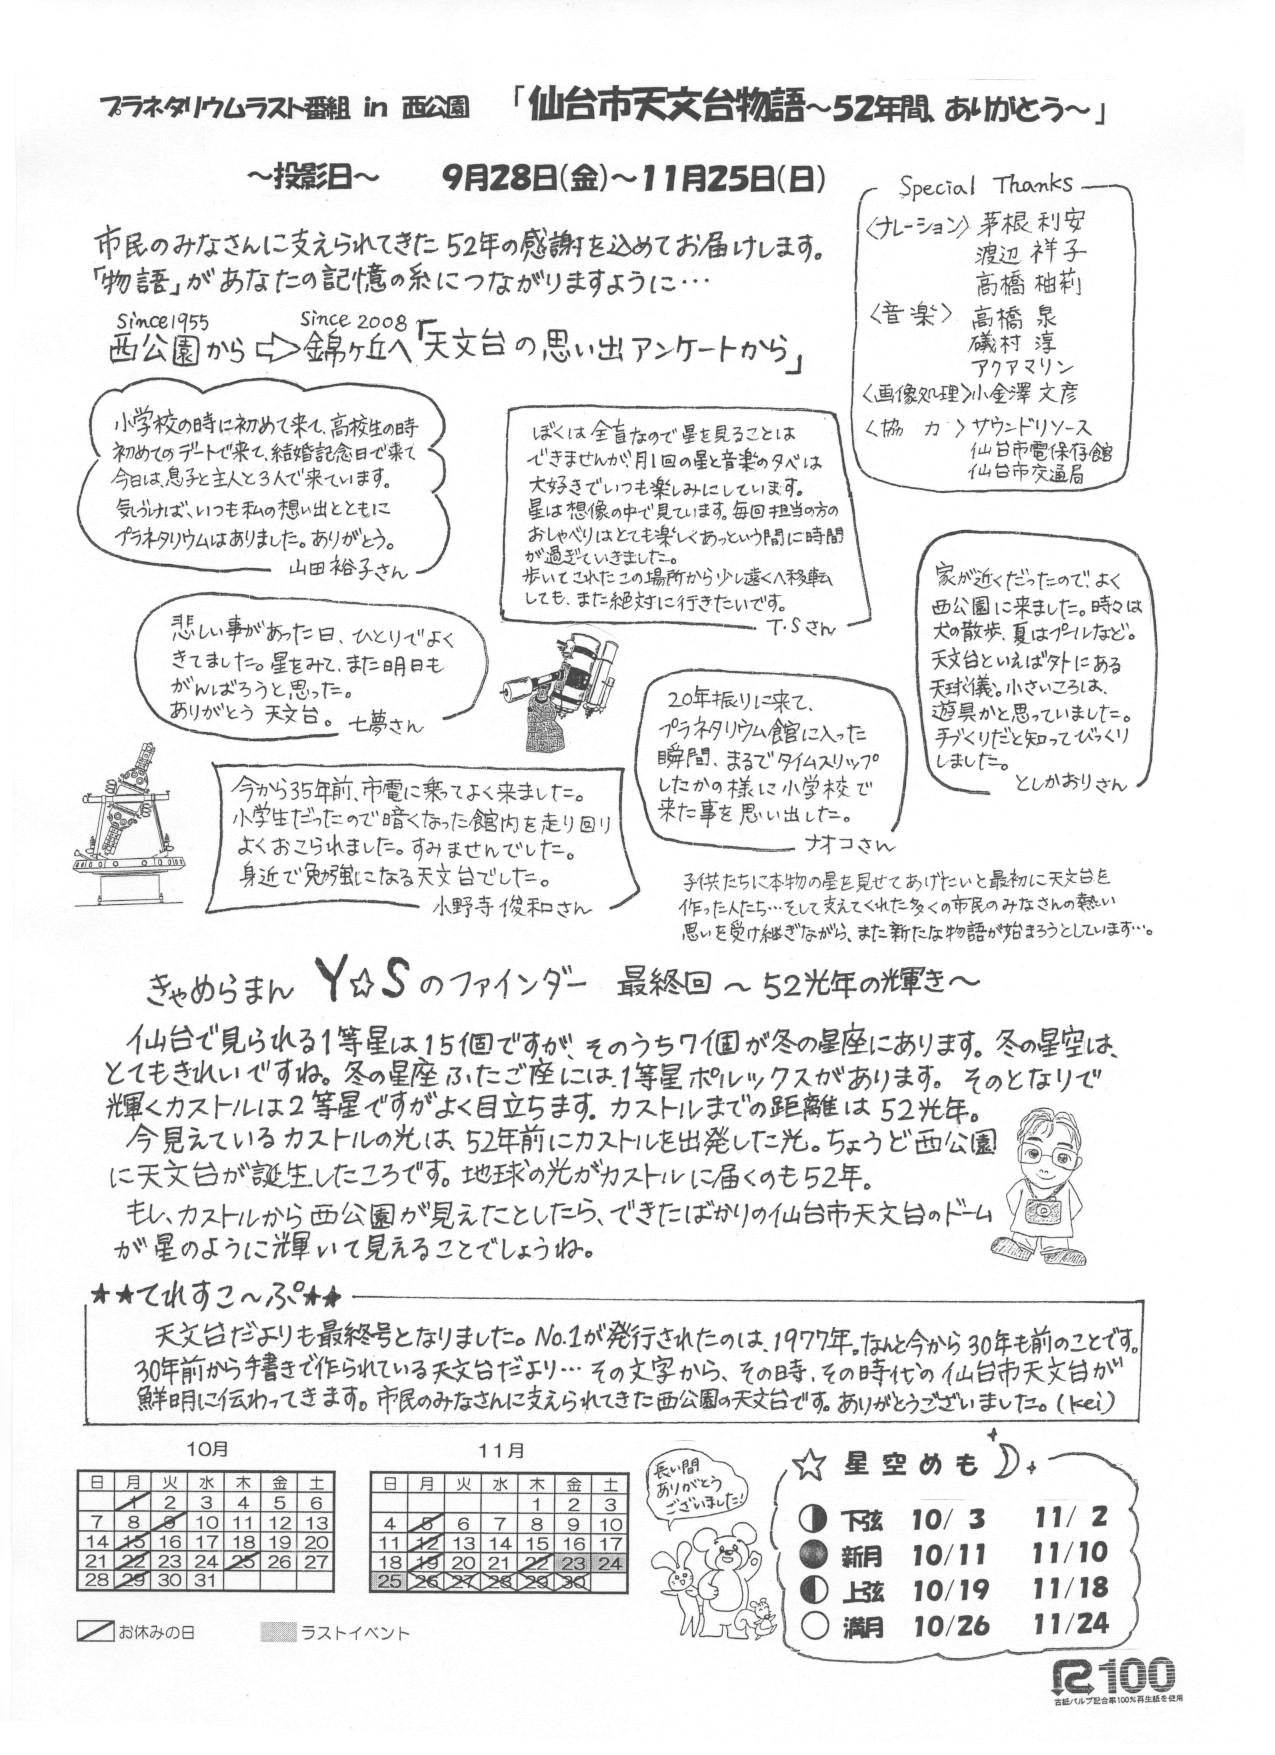 プラネタリウムラスト番組 in 西公園 「仙台市天文台物語～52年間、ありがとう～」
～投影日～ 9月28日(金)～11月25日(日)
市民のみなさんに支えられてきた52年の感謝を込めてお届けします。
「物語」があなたの記憶の糸につながりますように…
Special Thanks
〈ナレーション〉茅根 利安
渡辺 祥子
高橋 柚莉
〈音楽〉高橋 泉
礒村 淳
アクアマリン
〈画像処理〉小金澤 文彦
〈協力〉サウンドリソース
仙台市電保存館
仙台市交通局
since1955 since 2008
西公園から⇨錦ケ丘へ「天文台の思い出アンケートから」
小学校の時に初めて来て、高校生の時
初めてのデートで来て、結婚記念日で来て
今日は、息子と主人と3人で来ています。
気づけば、いつも私の想い出とともに
プラネタリウムはありました。ありがとう。
山田裕子さん
ぼくは全盲なので星を見ることは
できませんが、月1回の星と音楽の夕べは
大好きでいつも楽しみにしています。
星は想像の中で見ています。毎回担当の方の
おしゃべりはとても楽しくあっという間に時間
が過ぎていきました。
歩いてこれたこの場所から少し遠くへ移転
しても、また絶対に行きたいです。
T・Sさん
家が近くだったので、よく
西公園に来ました。時々は
犬の散歩、夏はプールなど。
天文台といえば外にある
天球儀。小さいころは、
遊具かと思っていました。
手づくりだと知ってびっくり
しました。
としかおりさん
悲しい事があった日、ひとりでよく
きてました。星をみて、また明日も
がんばろうと思った。
ありがとう 天文台。
七夢さん
20年振りに来て、
プラネタリウム館に入った
瞬間、まるでタイムスリップ
したかの様に小学校で
来た事を思い出した。
ナオコさん
今から35年前、市電に乗ってよく来ました。
小学生だったので暗くなった館内を走り回り
よくおこられました。すみませんでした。
身近で勉強になる天文台でした。
小野寺俊和さん
子供たちに本物の星を見せてあげたいと最初に天文台を
作った人たち…そして支えてくれた多くの市民のみなさんの熱い
思いを受け継ぎながら、また新たな物語が始まろうとしています…。
きゃめらまん Y☆Sのファインダー 最終回 ～52光年の輝き～
仙台で見られる1等星は15個ですが、そのうち7個が冬の星座にあります。冬の星空は、
とてもきれいですね。冬の星座ふたご座には、1等星ポルックスがあります。そのとなりで
輝くカストルは2等星ですがよく目立ちます。カストルまでの距離は52光年。
今見えているカストルの光は、52年前にカストルを出発した光。ちょうど西公園
に天文台が誕生したころです。地球の光がカストルに届くのも52年。
もし、カストルから西公園が見えたとしたら、できたばかりの仙台市天文台のドーム
が星のように輝いて見えることでしょうね。
★★てれすこ～ぷ★★
天文台だよりも最終号となりました。No.1が発行されたのは、1977年。なんと今から30年も前のことです。
30年前から手書きで作られている天文台だより…その文字から、その時、その時代の仙台市天文台が
鮮明に伝わってきます。市民のみなさんに支えられてきた西公園の天文台です。ありがとうございました。(kei)
10月
日 月 火 水 木 金 土
1 2 3 4 5 6
7 8 9 10 11 12 13
14 15 16 17 18 19 20
21 22 23 24 25 26 27
28 29 30 31
11月
日 月 火 水 木 金 土
1 2 3
4 5 6 7 8 9 10
11 12 13 14 15 16 17
18 19 20 21 22 23 24
25 26 27 28 29 30
お休みの日 ラストイベント
長い間
ありがとう
ございました!
☆星空めも
下弦 10/3 11/2
新月 10/11 11/10
上弦 10/19 11/18
満月 10/26 11/24
R100
古紙パルプ配合率100%再生紙を使用